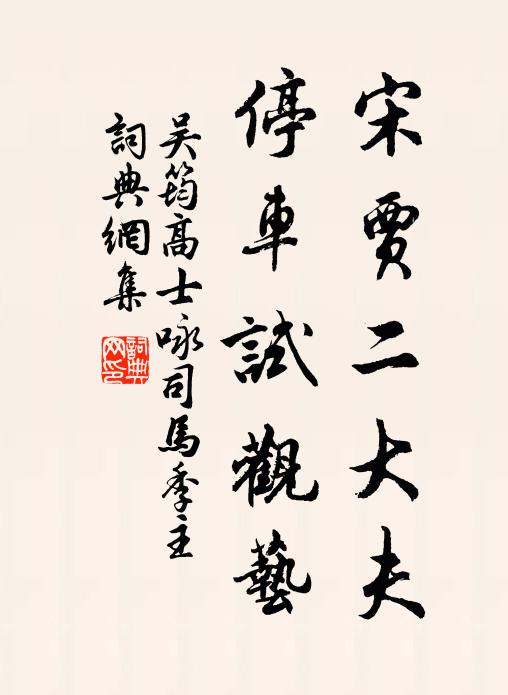 宋賈二大夫
停車試觀藝
吴筠高士咏司馬季主
詞典網集
詞典網印